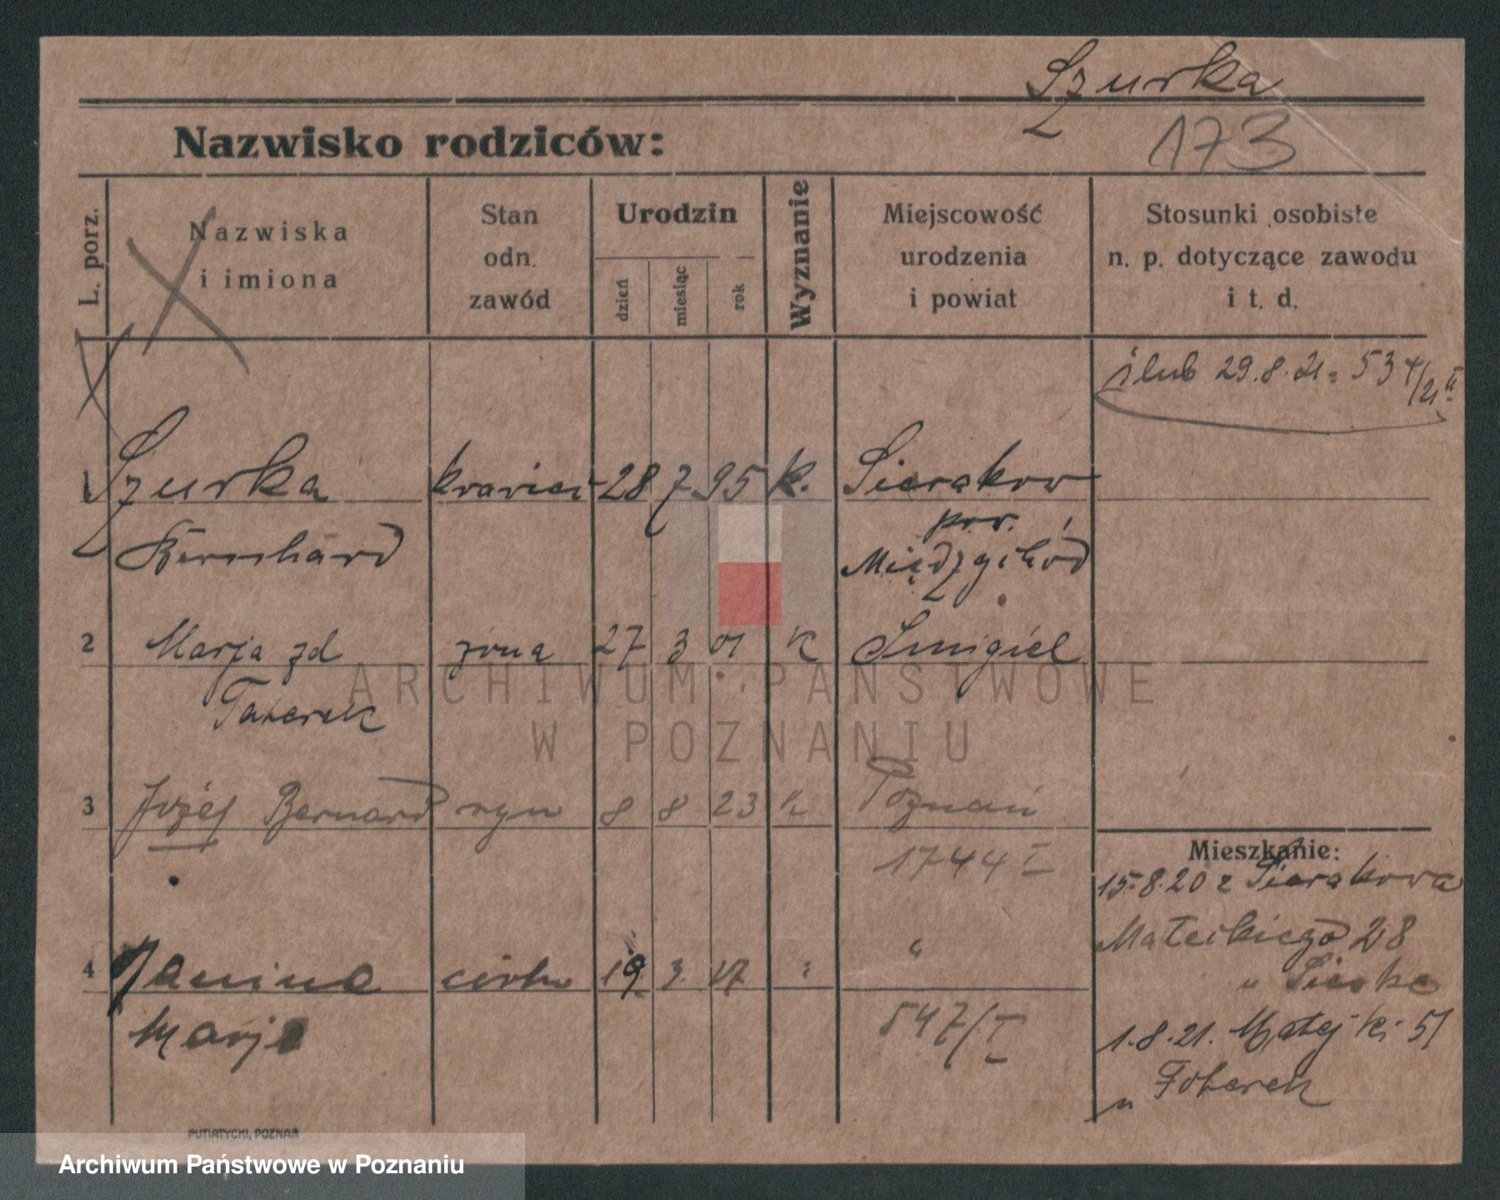 Szurka
173
Nazwisko rodziców:
L. porz.
Nazwiska
i imiona
Stan
odn.
zawód
Urodzin
dzień
miesiąc
rok
Wyznanie
Miejscowość
urodzenia
i powiat
Stosunki osobiste
n. p. dotyczące zawodu
i t. d.
ślub 29.8.21 = 534/21 II
1 Szurka krawiec 28 7 95 k. Sierakow
Bernhard pow.
Międzychód
2 Marja zd żona 27 3 01 k Smigiel
Taberek
3 Józef Bernard syn 8 8 23 k Poznań
1744 I
Mieszkanie:
15.8.20 z Sierakowa
Matejkiego 28
"
4 Janina córka 19 3 27 "
Marja
547/I
1.8.21. Matejki 51
" Taberek
PUTIATYCKI, POZNAŃ
ARCHIWUM PAŃSTWOWE
W POZNANIU
Archiwum Państwowe w Poznaniu